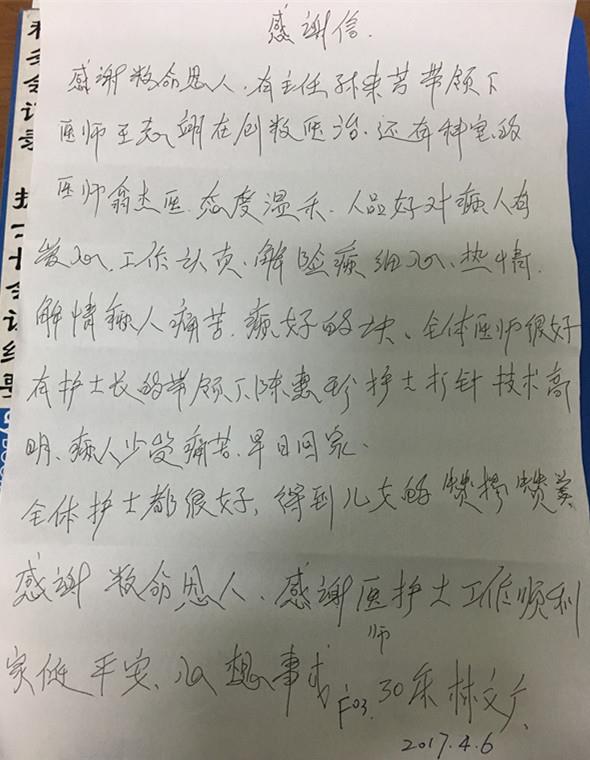 感谢信.
感谢救命恩人、有主任孙来苦带领下
医师王志翊在创救医治、还有科室的
医师翁杰医、态度温柔、人品好对病人有
爱心、工作认真、解验病细心、热情、
解情病人痛苦、病好的快、全体医师很好
有护士长的带领下、陈惠珍护士打针技术高
明、病人少受痛苦、早日回家、
全体护士都很好、得到儿女的赞扬赞美
感谢救命恩人、感谢医师护士工作顺利
家庭平安、心想事成
F03. 30床 林文
2017.4.6